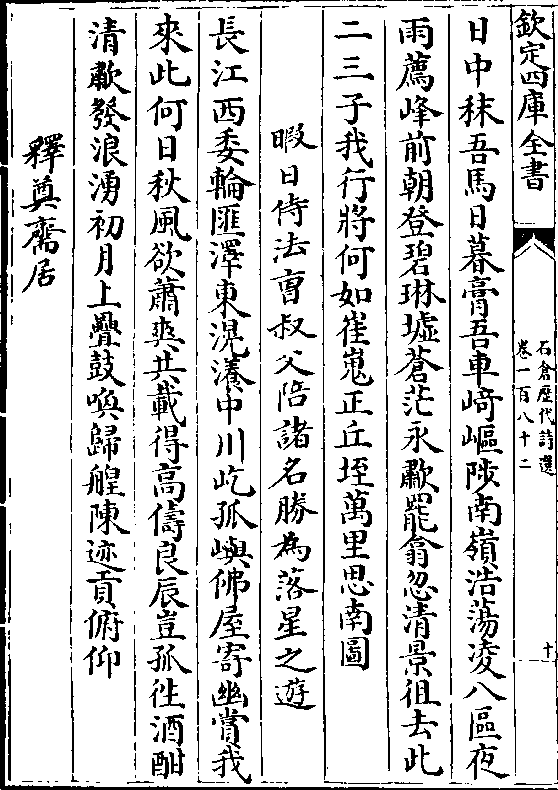 欽定四庫全書
石倉歷代詩選
卷一百八十二
十
日中秣吾馬日暮膏吾車﨑嶇陟南嶺浩蕩凌八區夜
雨薦峰前朝登碧琳墟蒼茫永歗罷翕忽清景徂去此
二三子我行將何如崔嵬正丘垤萬里思南圖
暇日侍法曹叔父陪諸名勝為落星之遊
長江西委輪匯澤東滉瀁中川屹孤嶼佛屋寄幽賞我
來此何日秋風欲蕭爽共載得高儔良辰豈孤徃酒酣
清歗發浪湧初月上疊鼓喚歸艎陳迹貢俯仰
釋奠齋居